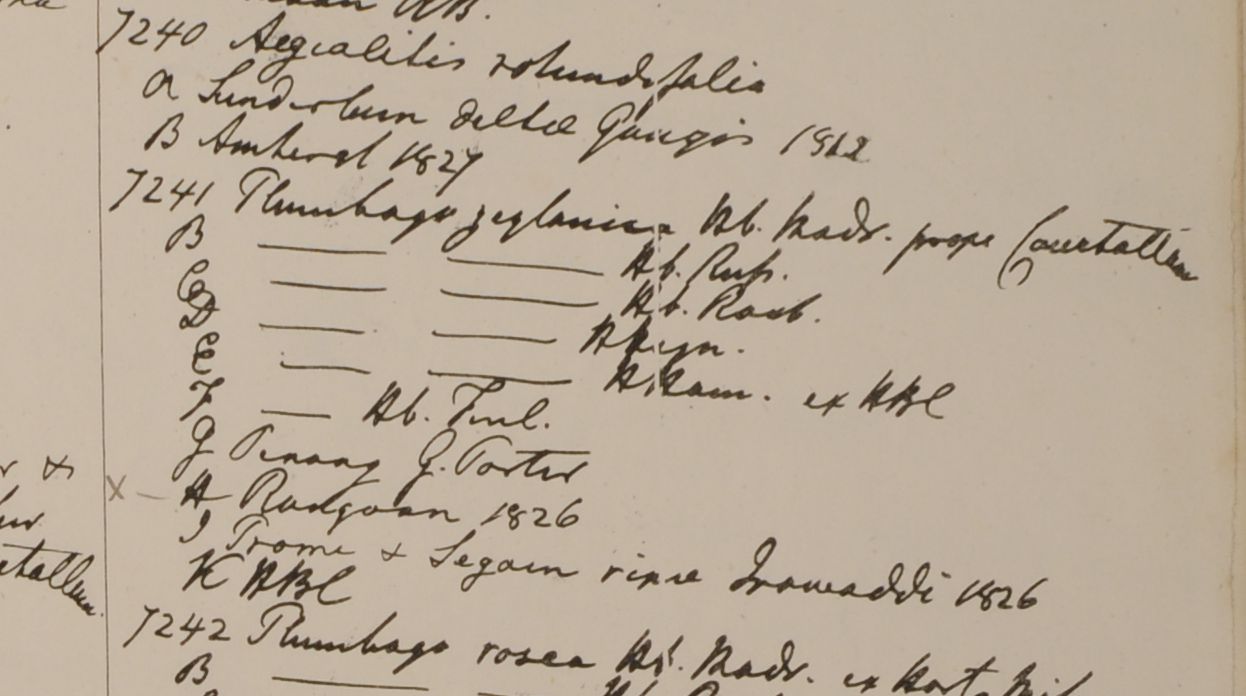 HB.
7240 Aegialitis rotundifolia
a Sunderbun deltae Gangis 1812
B Amherst 1827
7241 Plumbago zeylanica Hb. Madr. prope Courtallam
B — — Hb. Russ.
C — — Hb. Roxb.
D — — HHeyn.
E — — HHam. ex HBC
F — Hb. Finl.
G Penang G. Porter
x – H Rangoon 1826
I Prome & Segain ripae Irawaddi 1826
K HBC
7242 Plumbago rosea Hb. Madr. ex Hort
B — —